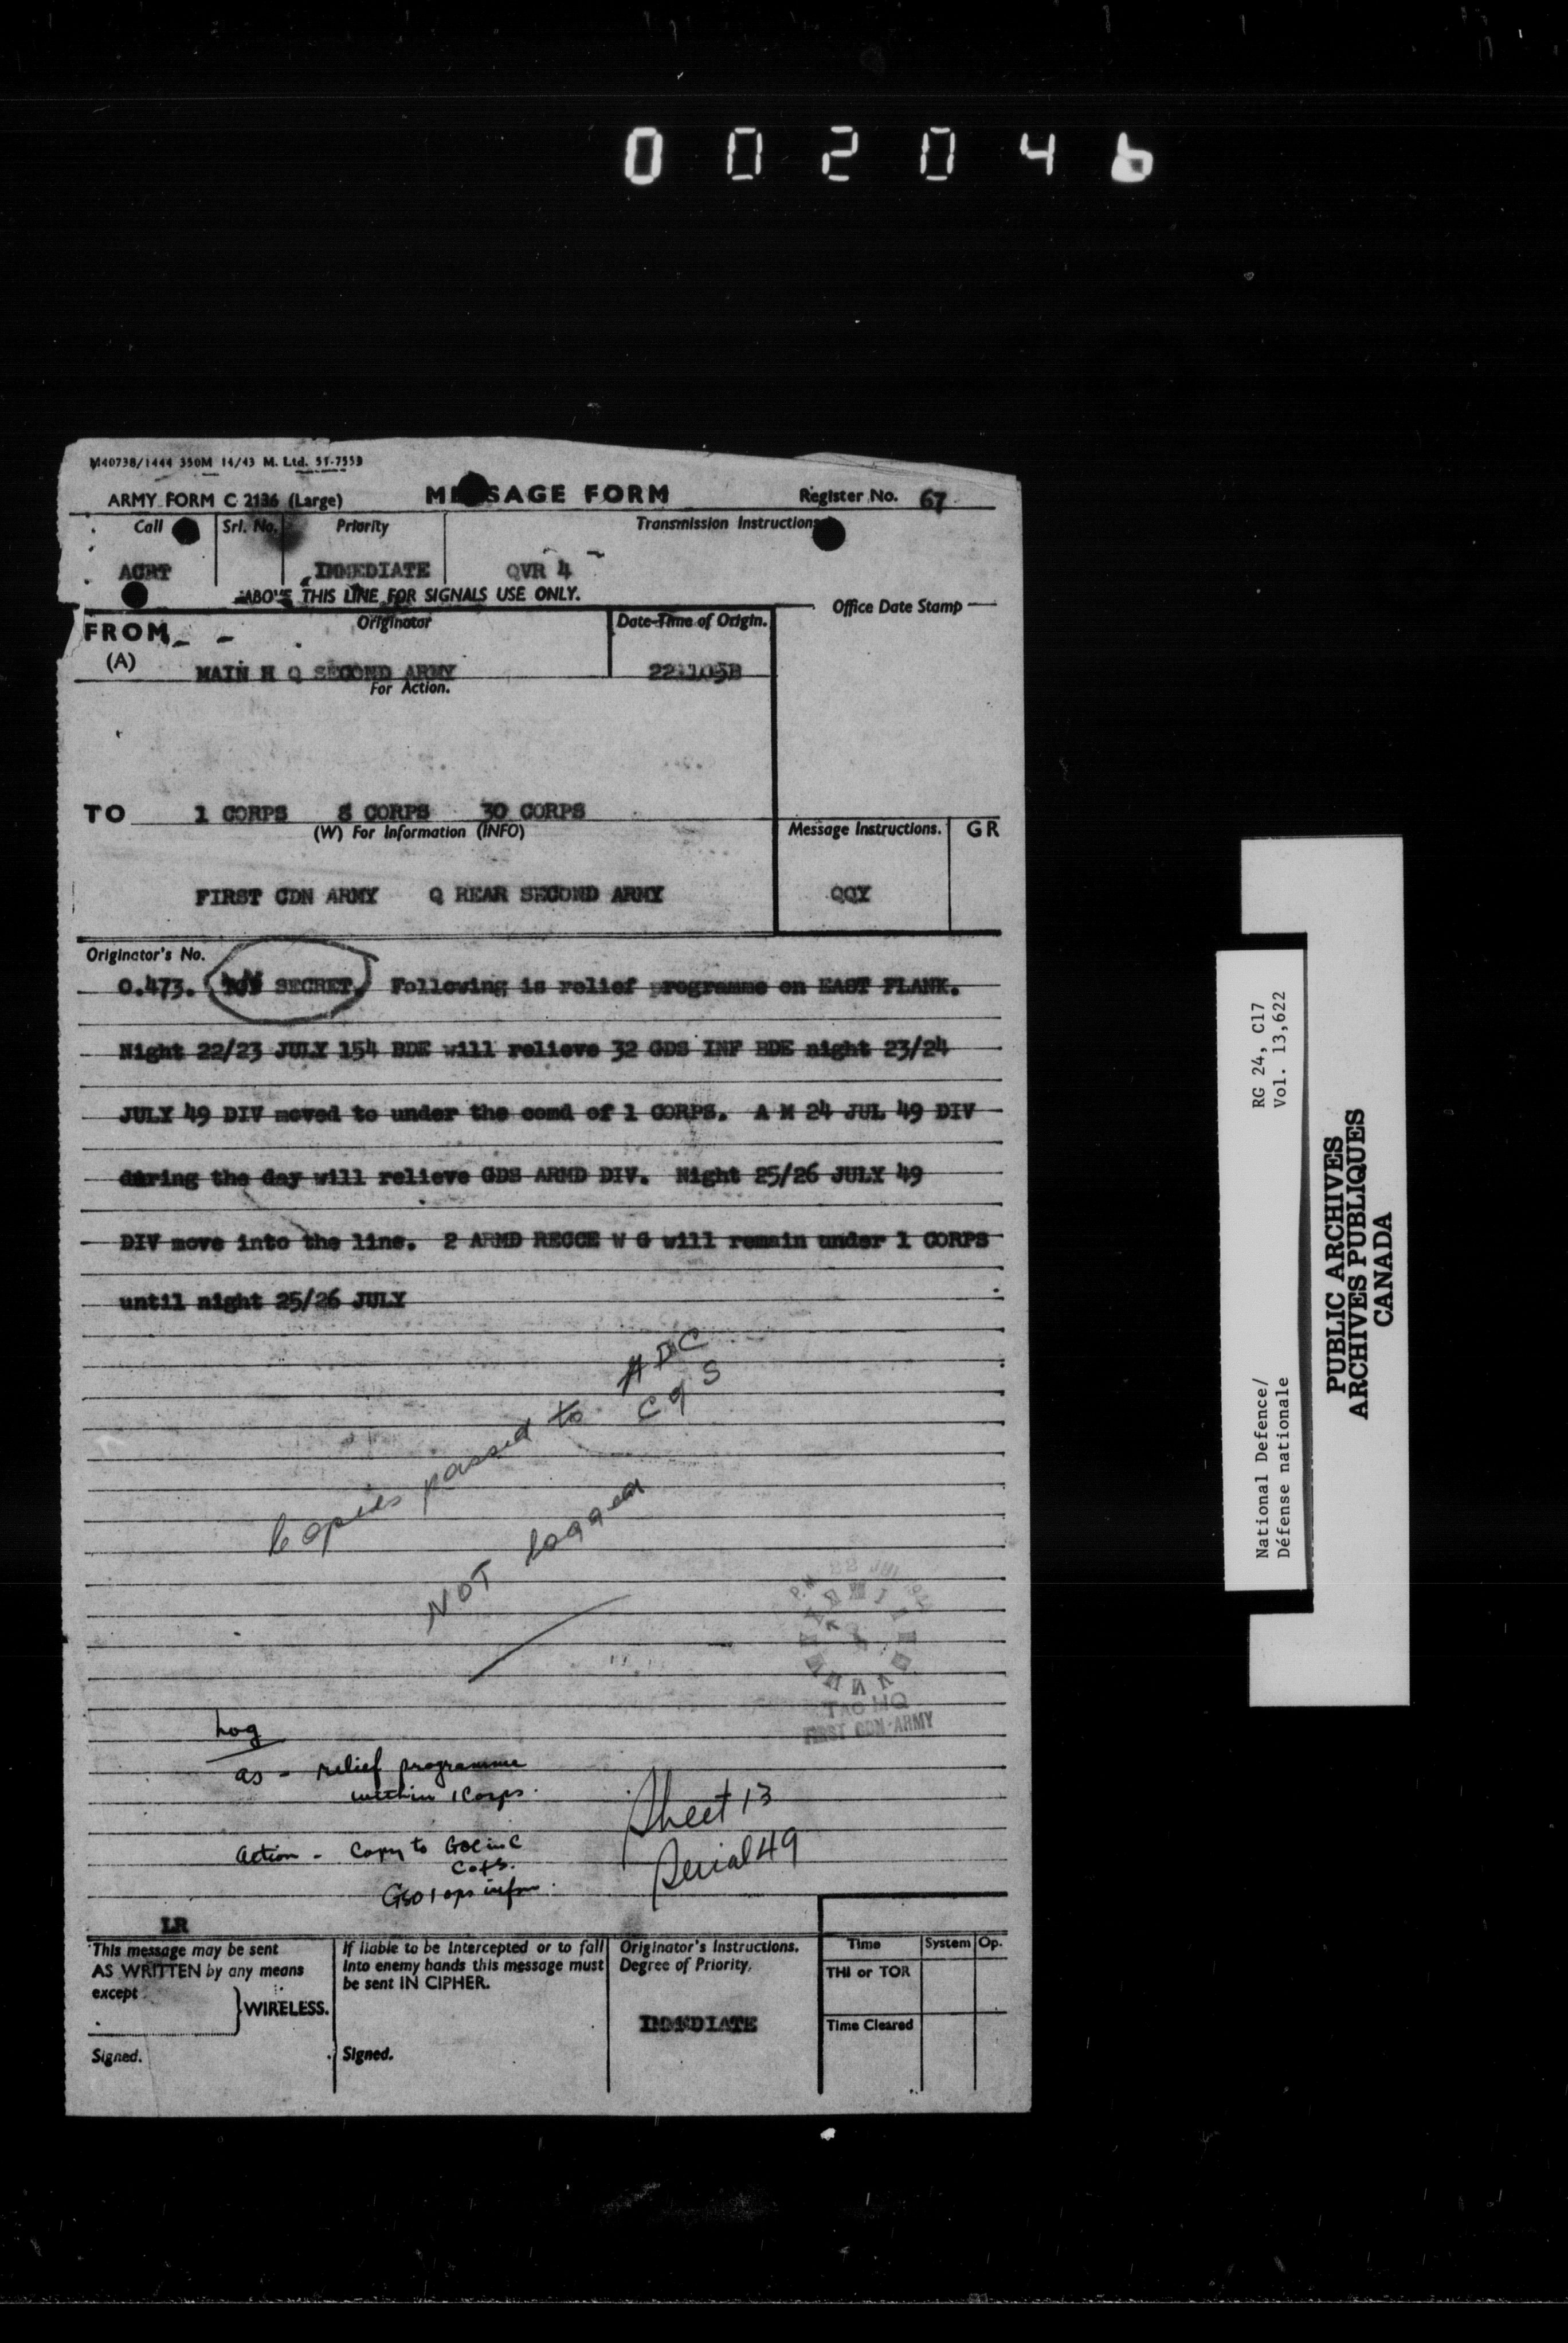 002046
M40738/1444 350M 14/43 M. Ltd. 51-7553
ARMY FORM C 2136 (Large) MESSAGE FORM Register No. 67
Call Srl. No. Priority Transmission Instructions
ACRT IMMEDIATE QVR 4
ABOVE THIS LINE FOR SIGNALS USE ONLY.
Office Date Stamp
FROM Originator Date-Time of Origin.
(A) MAIN H Q SECOND ARMY 221105B
For Action.
TO 1 CORPS 8 CORPS 30 CORPS
(W) For Information (INFO) Message Instructions. GR
FIRST CDN ARMY Q REAR SECOND ARMY QQY
Originator's No.
O.473. TOP SECRET. Following is relief programme on EAST FLANK.
Night 22/23 JULY 154 BDE will relieve 32 GDS INF BDE night 23/24
JULY 49 DIV moved to under the comd of 1 CORPS. A M 24 JUL 49 DIV
during the day will relieve GDS ARMD DIV. Night 25/26 JULY 49
DIV move into the line. 2 ARMD RECCE W G will remain under 1 CORPS
until night 25/26 JULY
Copies passed to ADC
C of S
NOT logged
P.M 22
TAC HQ
FIRST CDN ARMY
Log
as - relief programme
within 1 Corps.
Action - Copy to GOC in C
C of S.
GSO 1 ops infm.
Sheet 13
Serial 49
LR
This message may be sent
AS WRITTEN by any means
except
WIRELESS.
Signed.
If liable to be Intercepted or to fall
Into enemy hands this message must
be sent IN CIPHER.
Signed.
Originator's Instructions.
Degree of Priority.
IMMEDIATE
Time System Op.
THI or TOR
Time Cleared
National Defence/ RG 24, C17
Défense nationale Vol. 13,622
PUBLIC ARCHIVES
ARCHIVES PUBLIQUES
CANADA